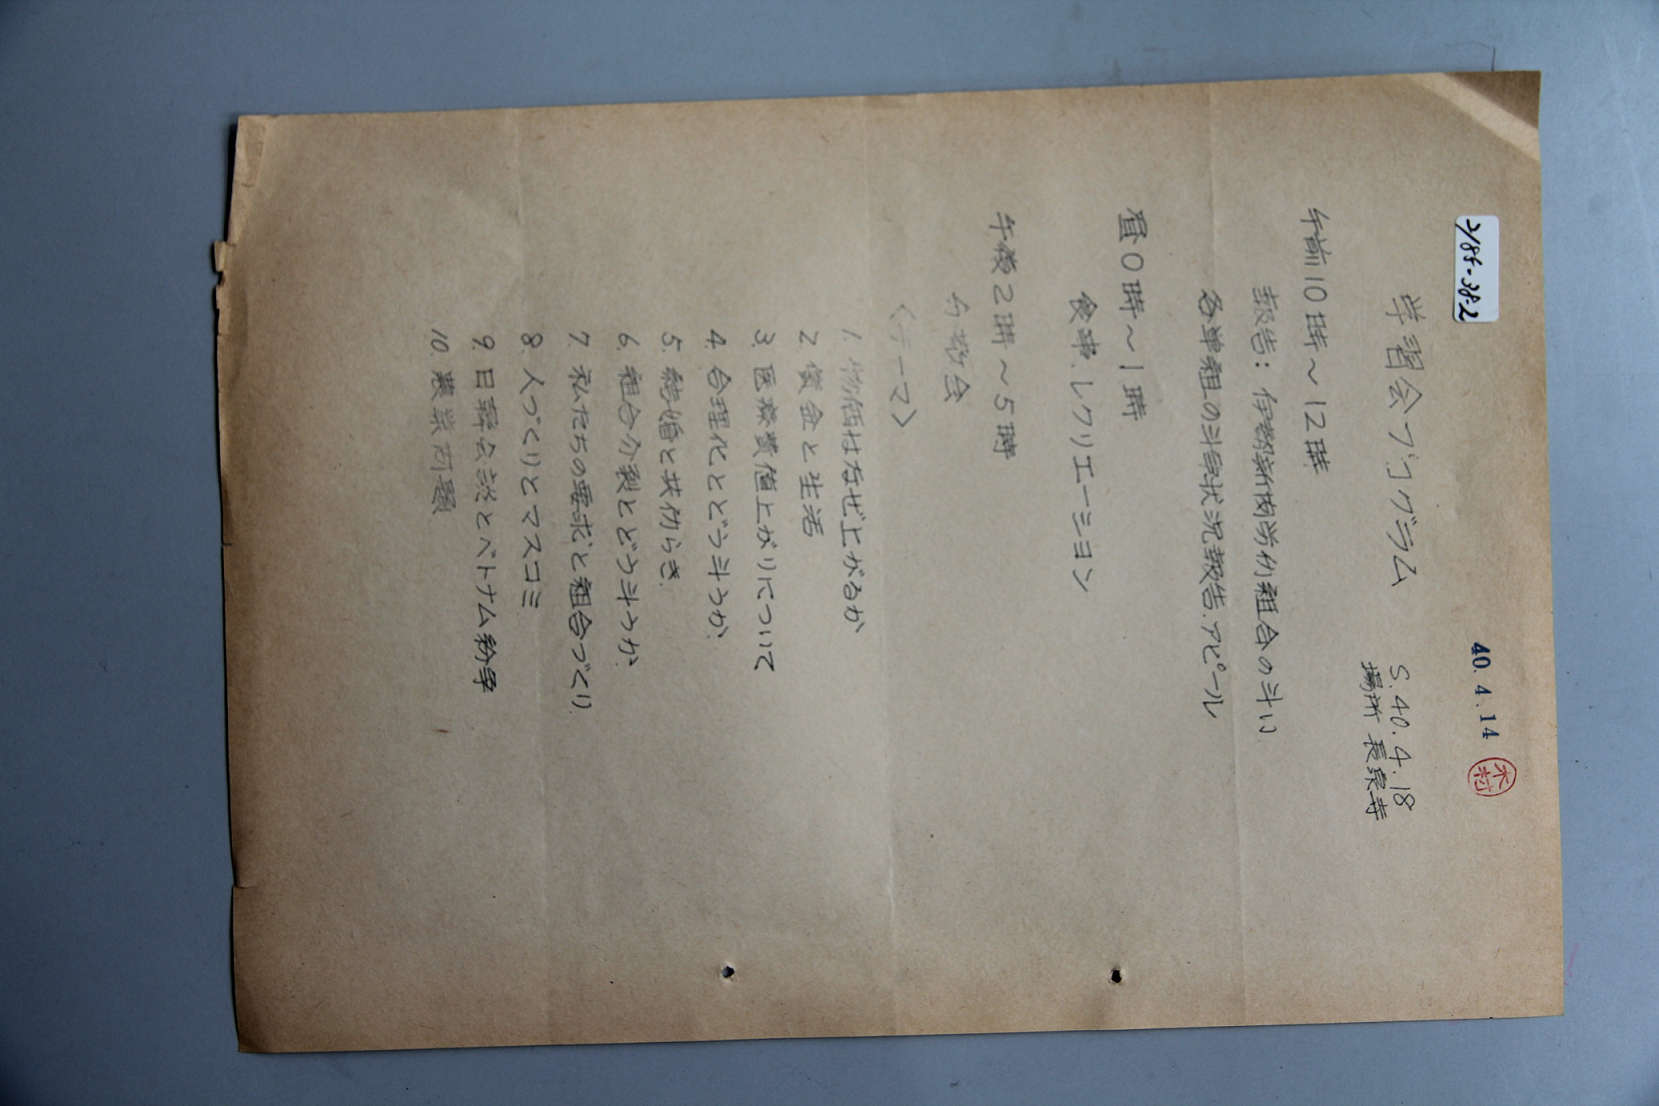 2185-38-2
40.4.14
木村
学習会プログラム
S.40.4.18
場所 長泉寺
午前10時〜12時
報告：伊勢新聞労仂組合の斗い
各単組の斗争状況報告.アピール
昼0時〜1時
食事.レクリエーション
午後2時〜5時
分散会
〈テーマ〉
1. 物価はなぜ上がるか
2 賃金と生活
3. 医療費値上がりについて
4. 合理化とどう斗うか.
5. 結婚と共仂らき.
6. 組合分裂とどう斗うか.
7 私たちの要求と組合づくり.
8. 人づくりとマスコミ
9. 日韓会談とベトナム紛争
10. 農業问題